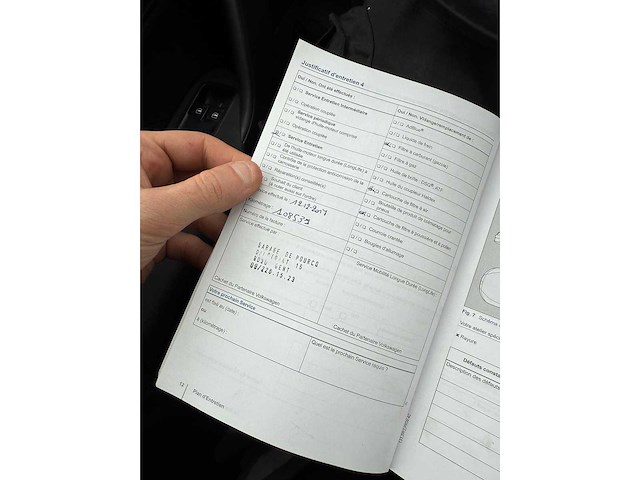 Justificatif d'entretien 4
Oui / Non, Ont été effectués :
Service Entretien Intermédiaire
Opération couplée
Service périodique
vidange d'huile moteur comprise
Opération couplée
Service Entretien
De l'huile-moteur longue durée (LongLife) a
été utilisée
Contrôle de la protection anticorrosion de la
carrosserie
Réparation(s) conseillée(s)
Souhait du client
(à noter aussi sur l'ordre)
Service effectué le : 12.12.2017
Kilométrage : 108539
Numéro de la facture :
Service effectué par :
GARAGE DE POURCQ
15
9050 GENT
09/220.15.23
Cachet du Partenaire Volkswagen
Votre prochain Service
est fixé au (date) :
ou
à (kilométrage) :
12
Plan d'Entretien
Oui / Non, Vidange/remplacement de :
AdBlue®
Liquide de frein
Filtre à carburant (gazole)
Filtre à gaz
Huile de boîte / DSG®, ATF
Huile du coupleur Haldex
Cartouche de filtre à air
Bouteille de produit de colmatage pour
pneus
Cartouche de filtre à poussière et à pollen
Courroie crantée
Bougies d'allumage
Service Mobilité Longue Durée (LongLife)
Cachet du Partenaire Volkswagen
Quel est le prochain Service requis ?
Fig. 7 Schéma
Votre atelier spécia
Rayure
Défauts consta
Description des défauts